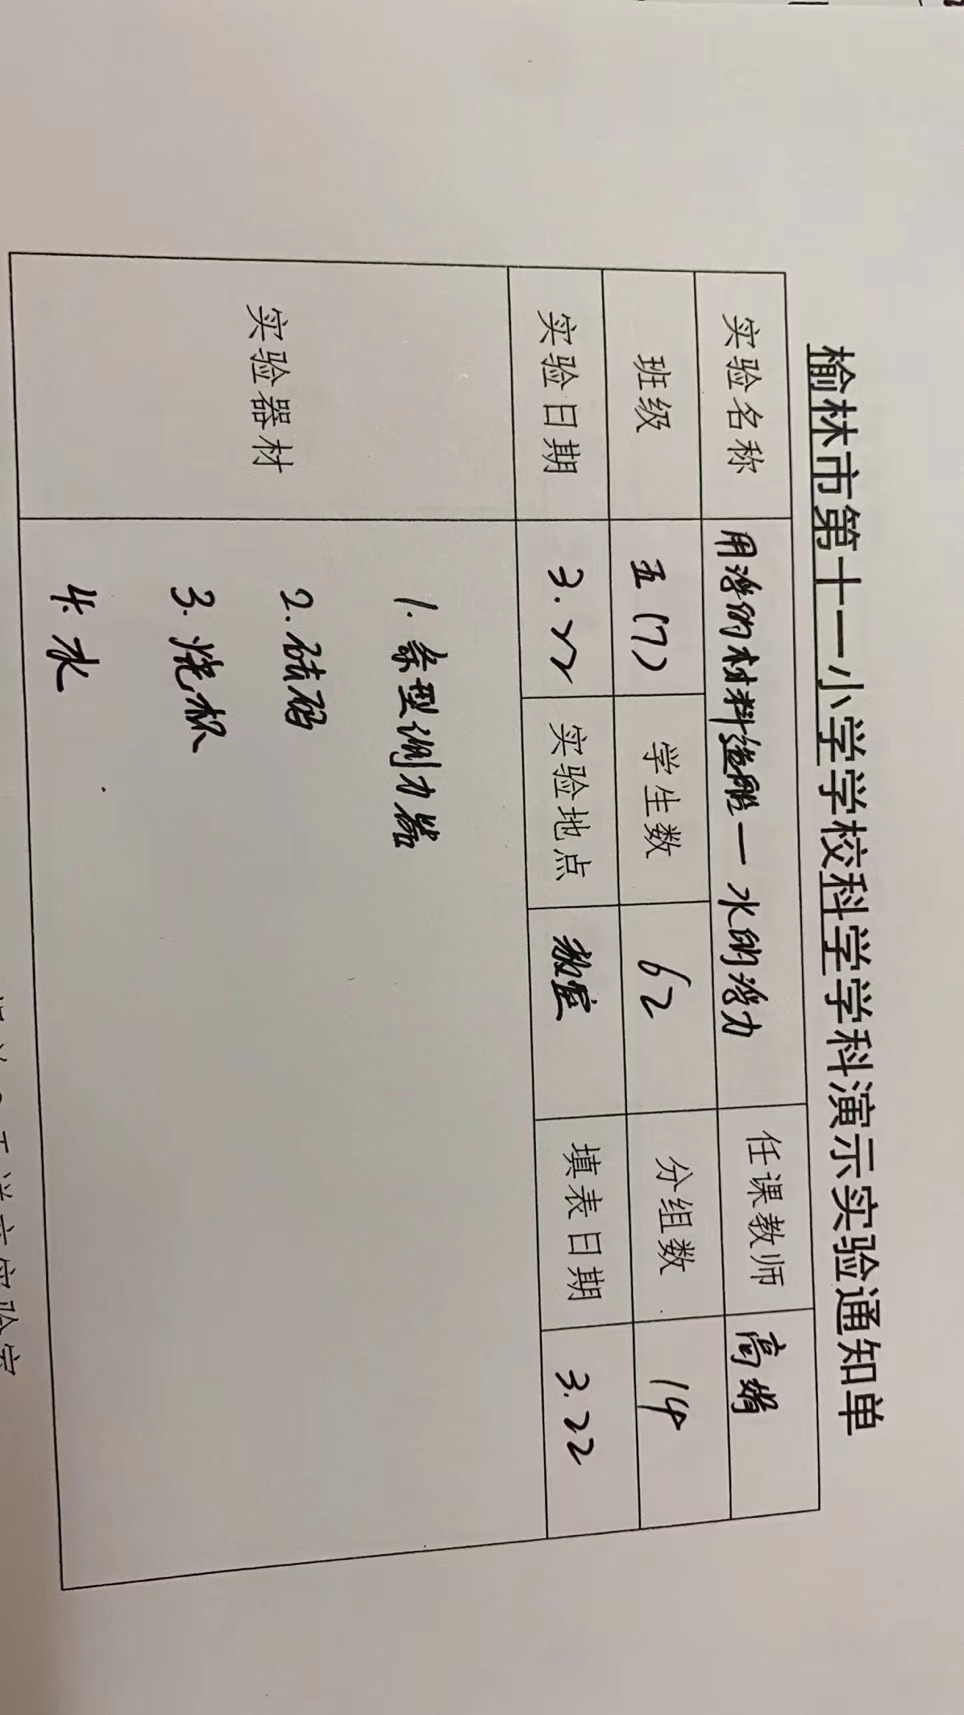 榆林市第十一小学学校科学学科演示实验通知单
实验名称 用浮的材料造船—水的浮力 任课教师 高婿
班级 五(7) 学生数 62 分组数 14
实验日期 3.22 实验地点 教室 填表日期 3.22
实验器材
1. 条型测力器
2. 砝码
3. 烧杯
4. 水